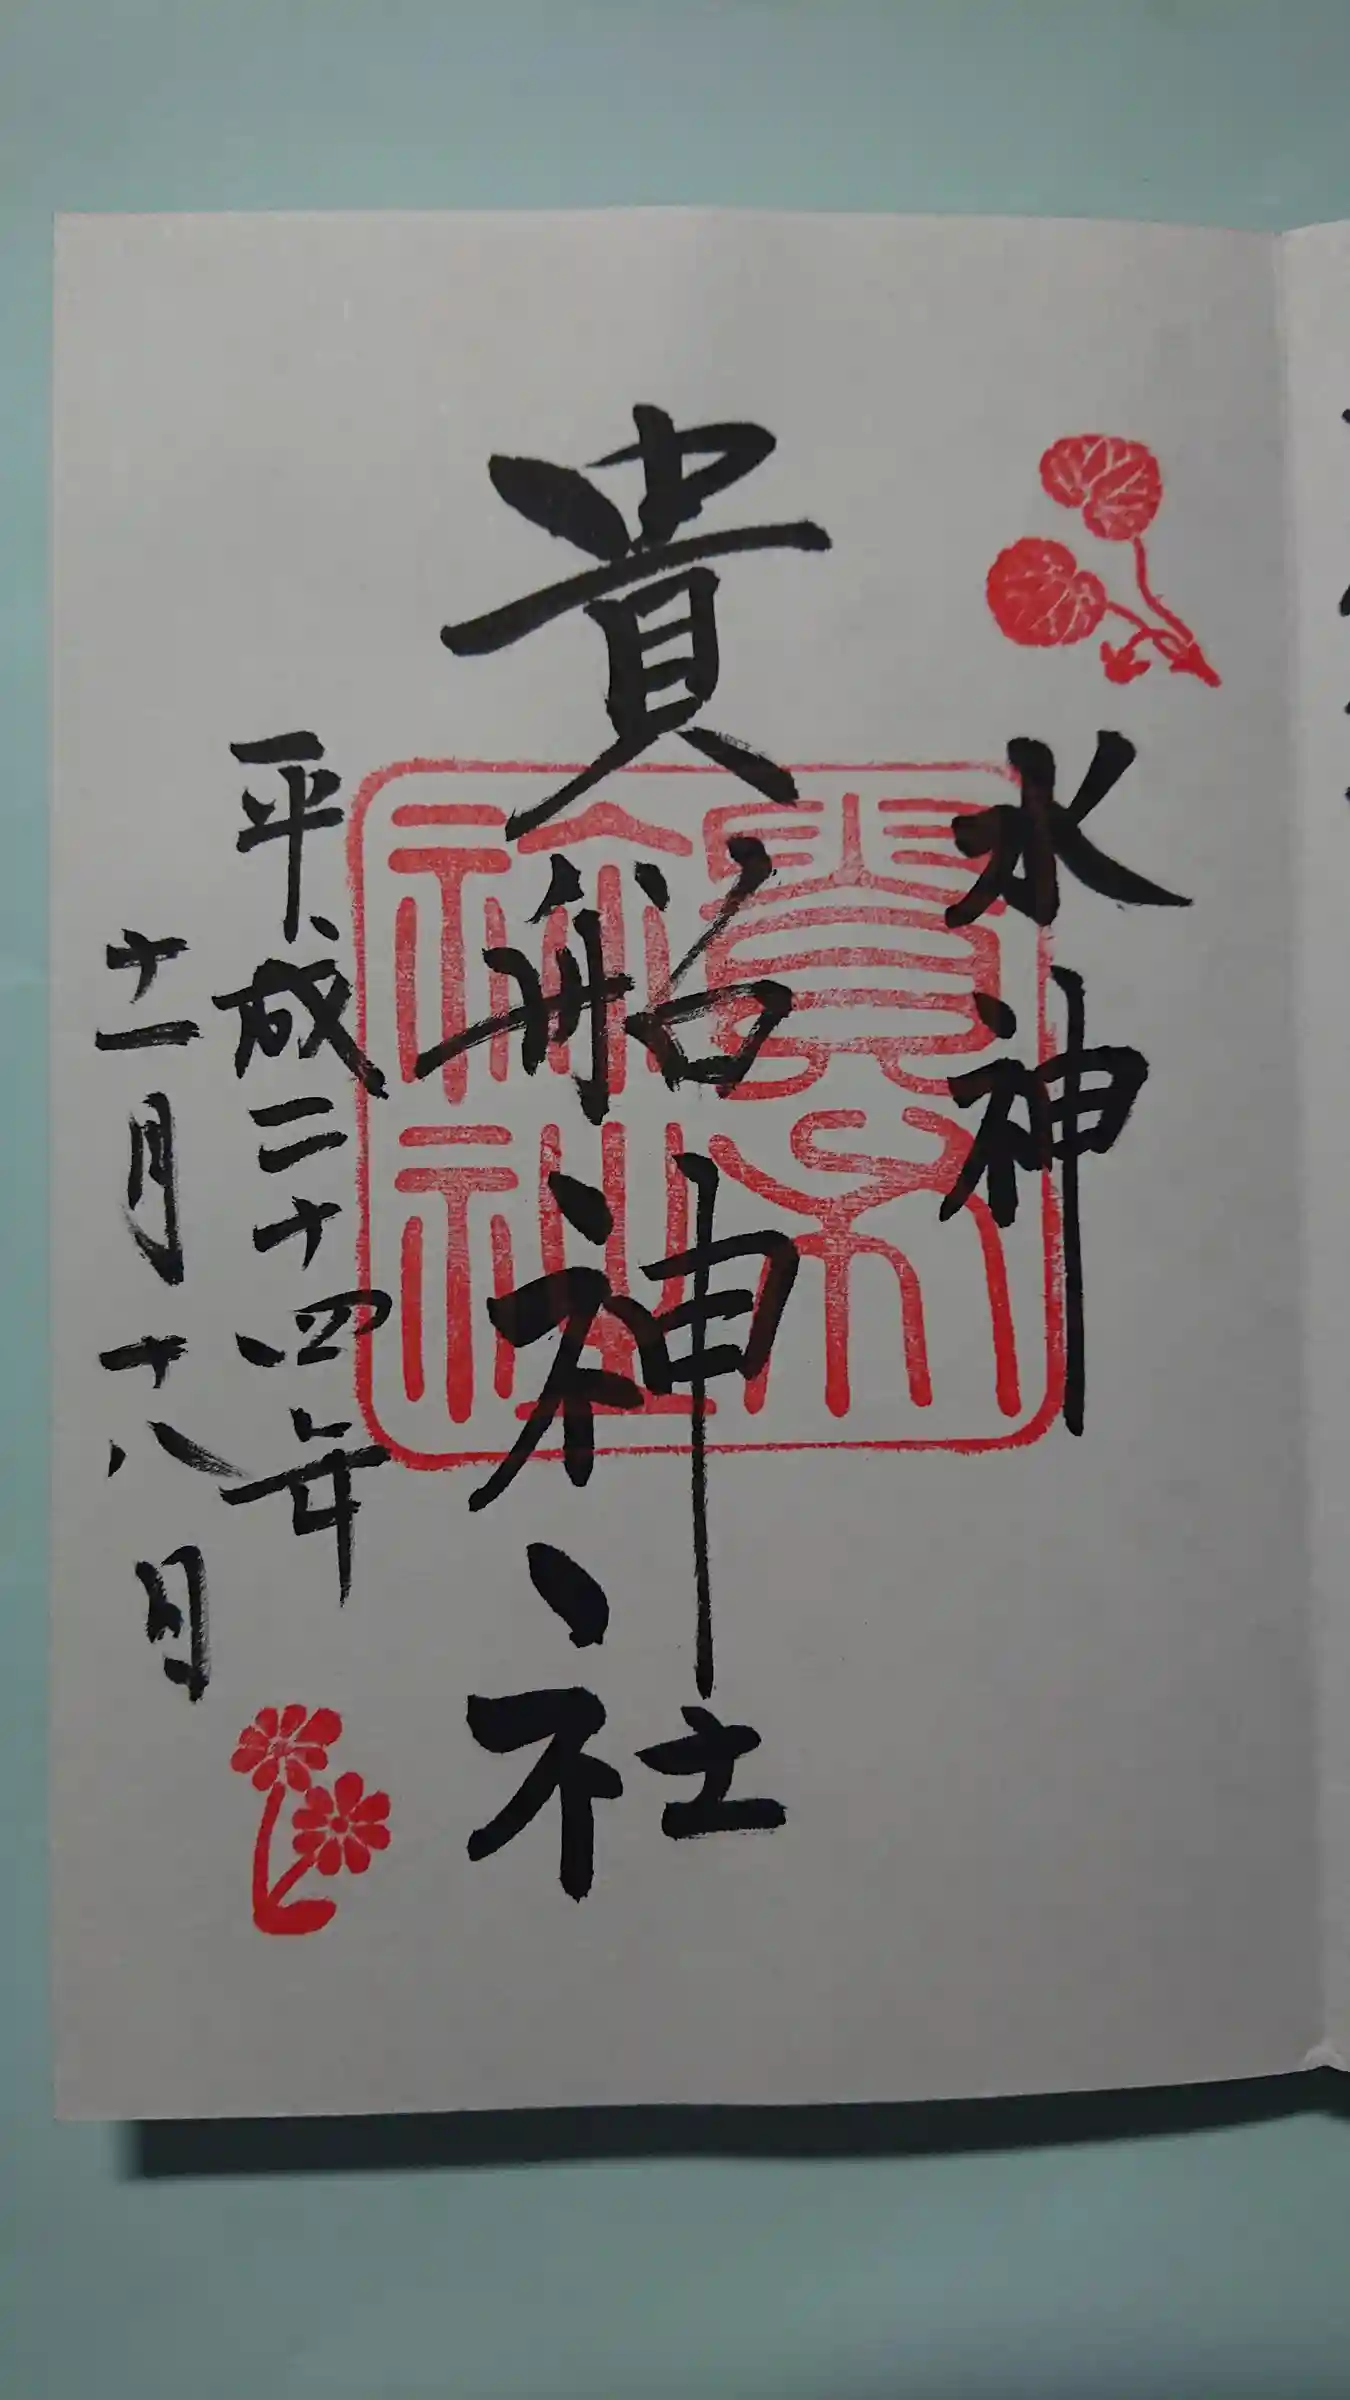 水神
貴船神社
平成二十四年
十一月十八日